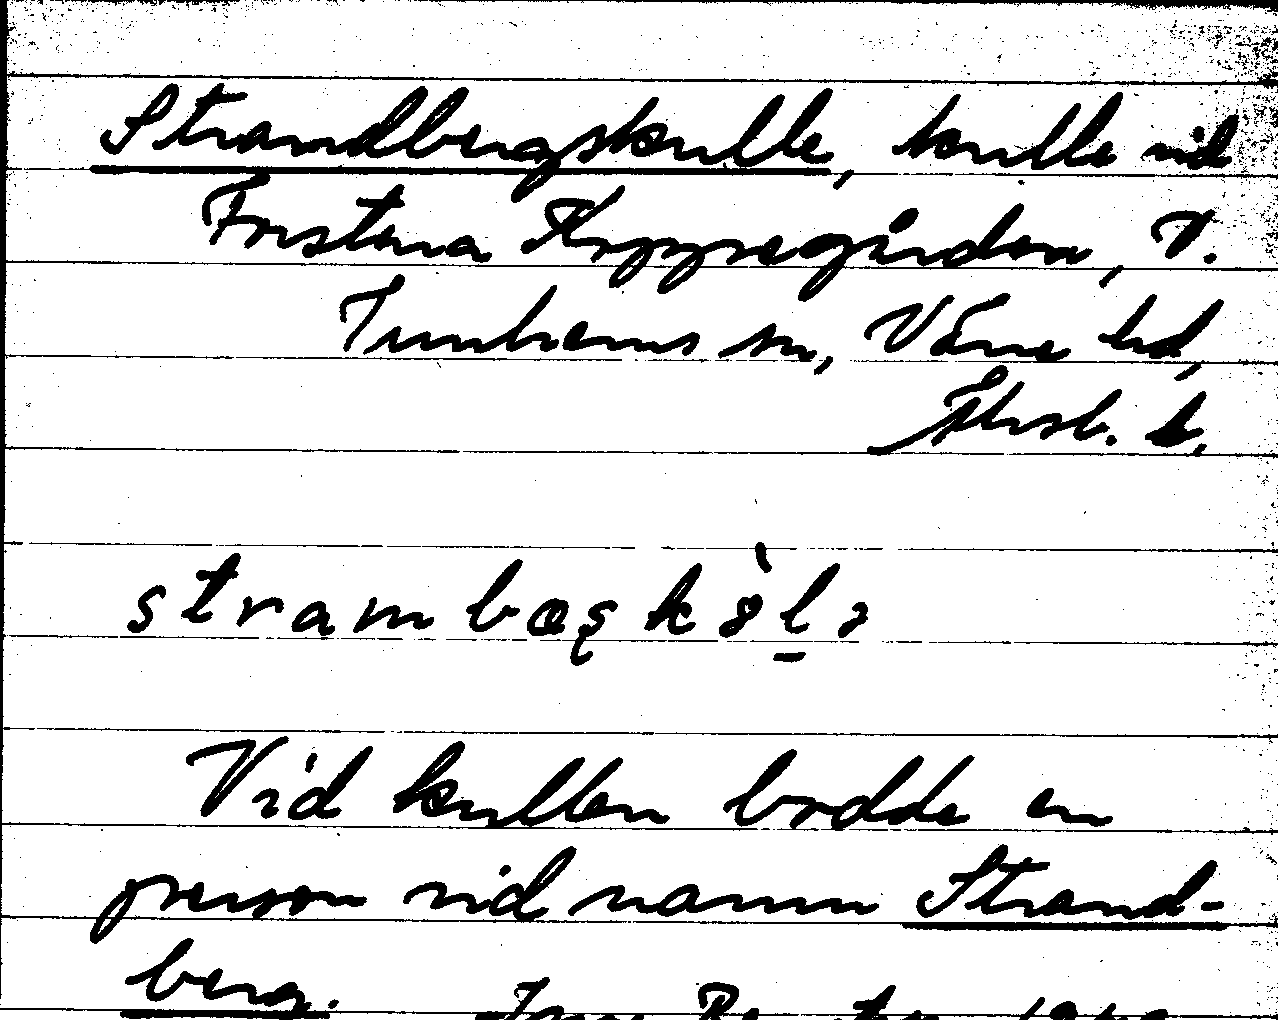 Strandbergskulle, kulle vid
Forstena Kyppegården, V.
Tunhems sn, Väne hd,
Älvsb. l.
Vid kullen bodde en
person vid namn Strand-
berg.